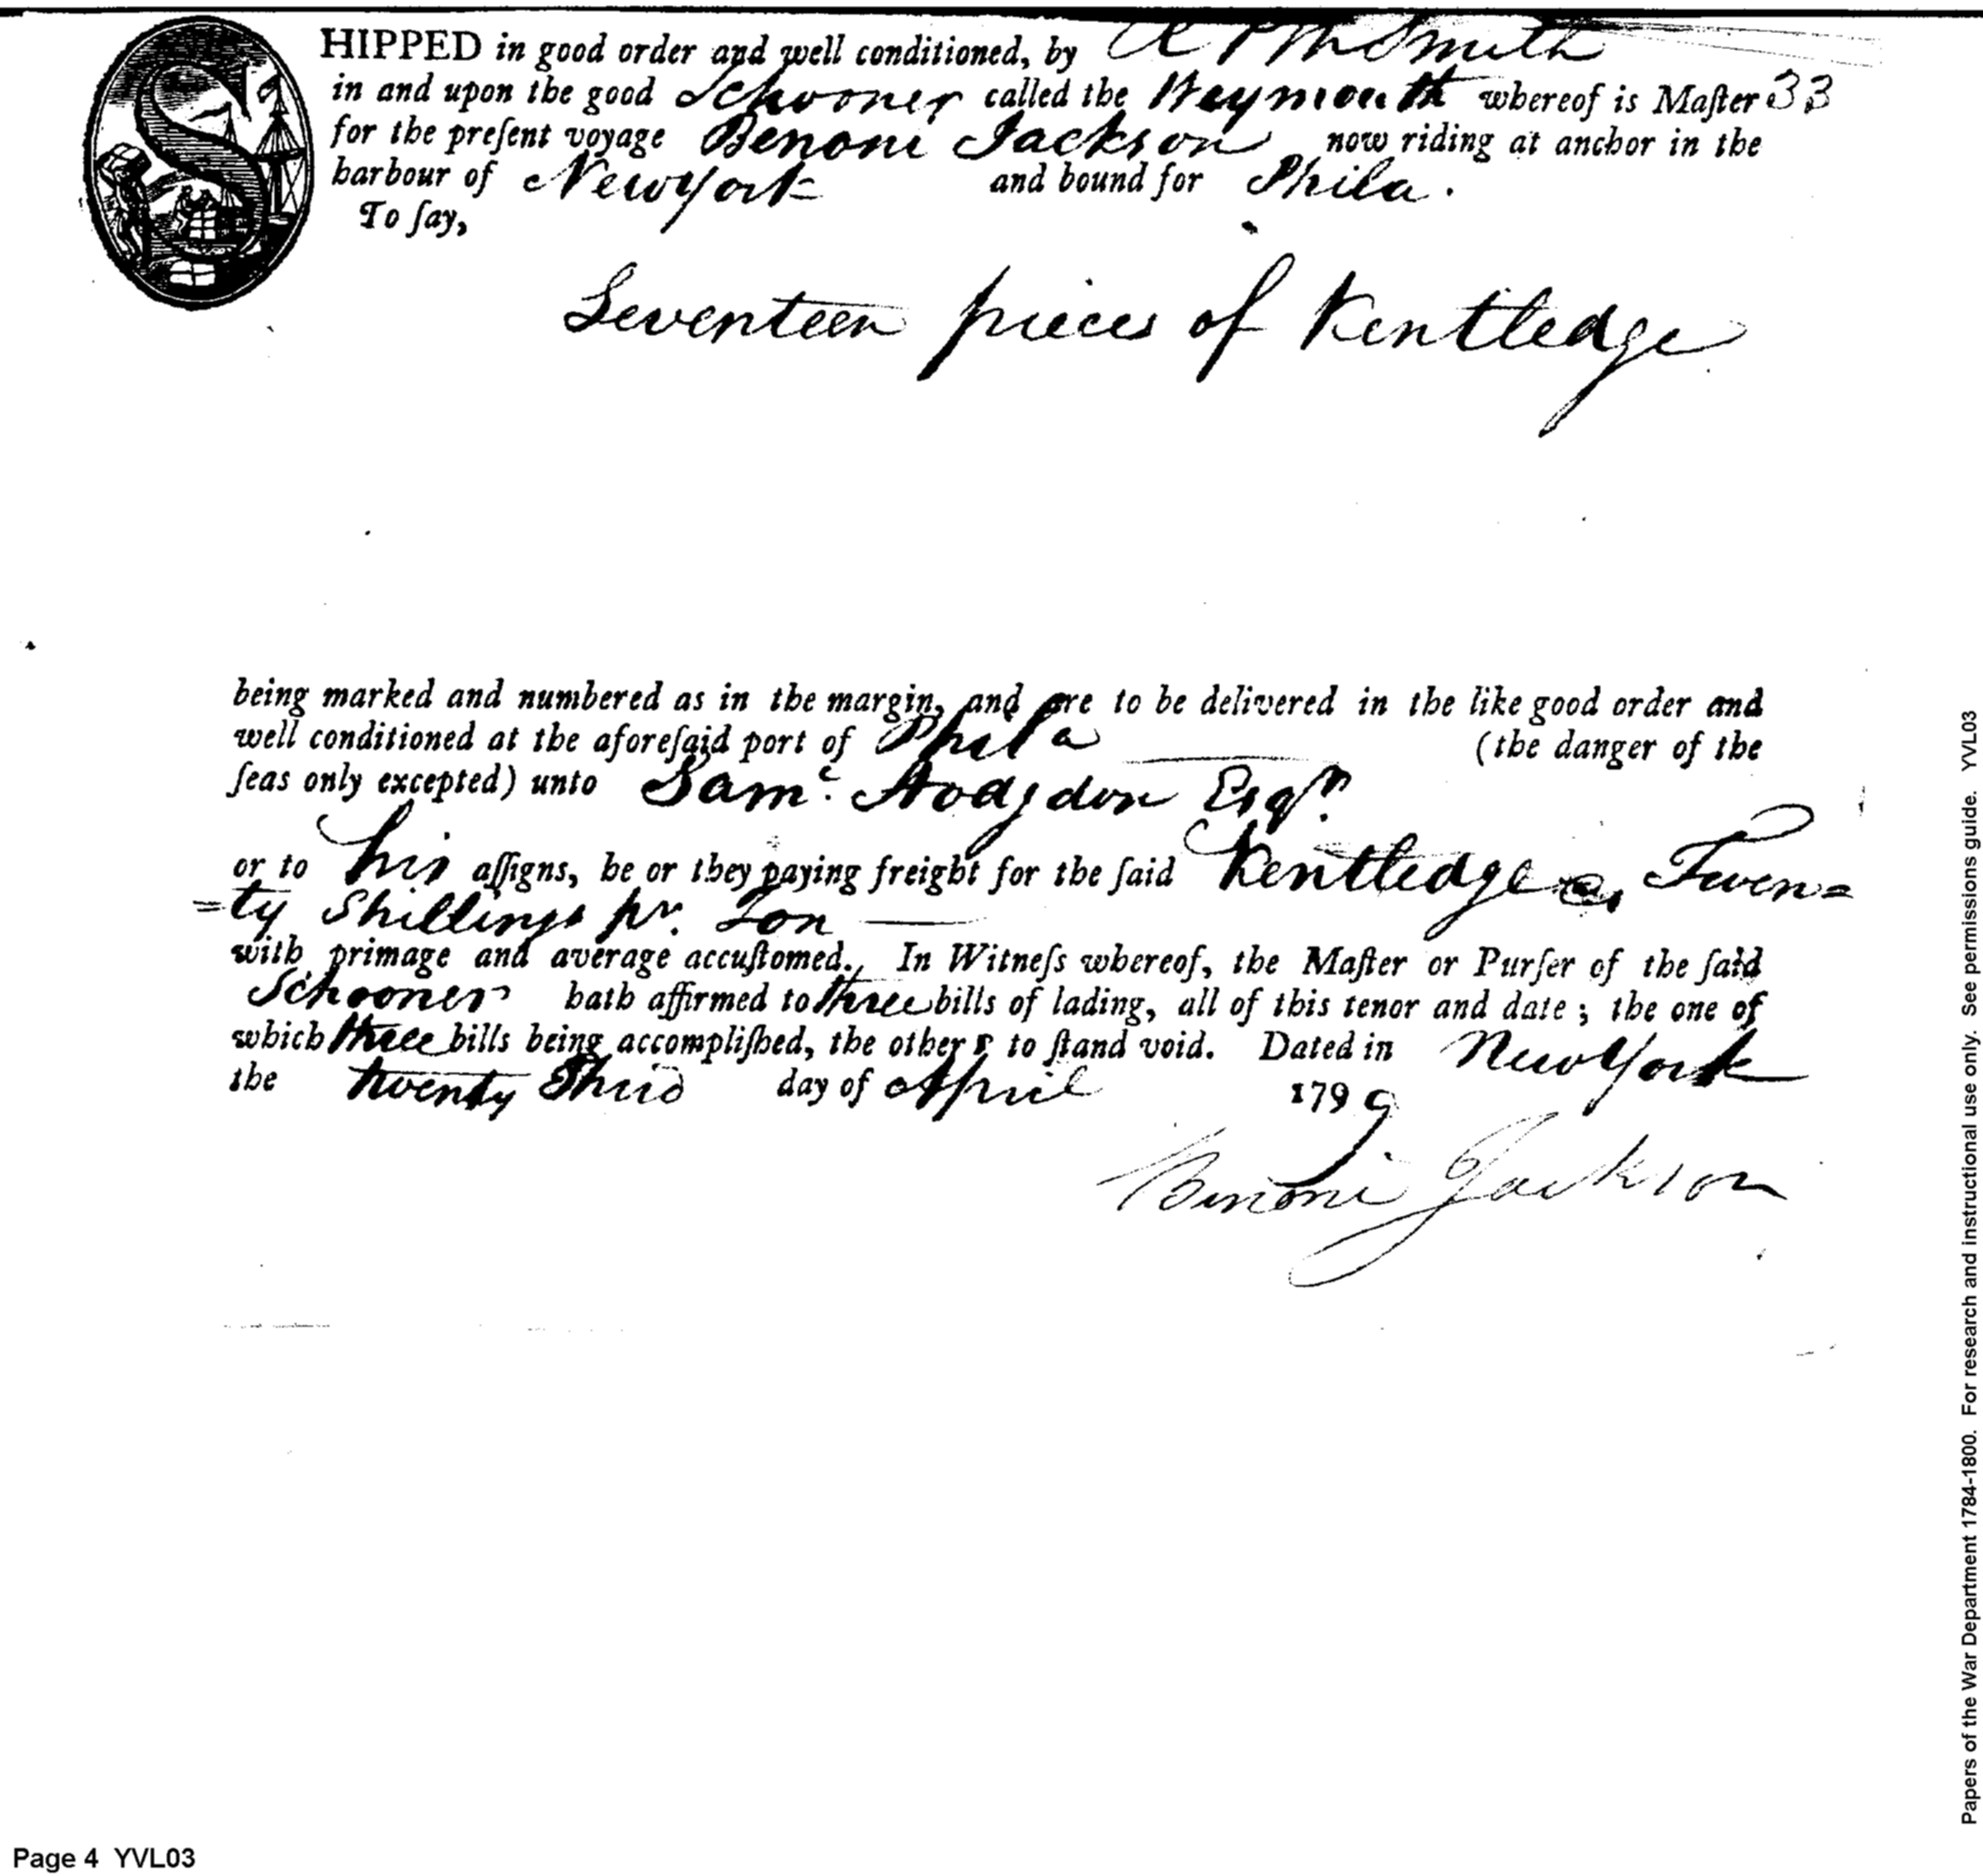 SHIPPED in good order and well conditioned, by Smith
in and upon the good Schooner called the Weymouth whereof is Maſter 33
for the preſent voyage Benoni Jackson now riding at anchor in the
harbour of New York and bound for Phila.
To ſay,
Seventeen pieces of Kentledge
being marked and numbered as in the margin, and are to be delivered in the like good order and
well conditioned at the aforeſaid port of Phila (the danger of the
ſeas only excepted) unto Saml. Hodgdon Esqr.
or to his aſſigns, he or they paying freight for the ſaid Kentledge @ Twen=
=ty Shillings pr. Ton
with primage and average accuſtomed. In Witneſs whereof, the Maſter or Purſer of the ſaid
Schooner hath affirmed to three bills of lading, all of this tenor and date; the one of
which three bills being accompliſhed, the others to ſtand void. Dated in New York
the twenty Third day of April 1799
Benoni Jackson
Papers of the War Department 1784-1800. For research and instructional use only. See permissions guide. YVL03
Page 4 YVL03